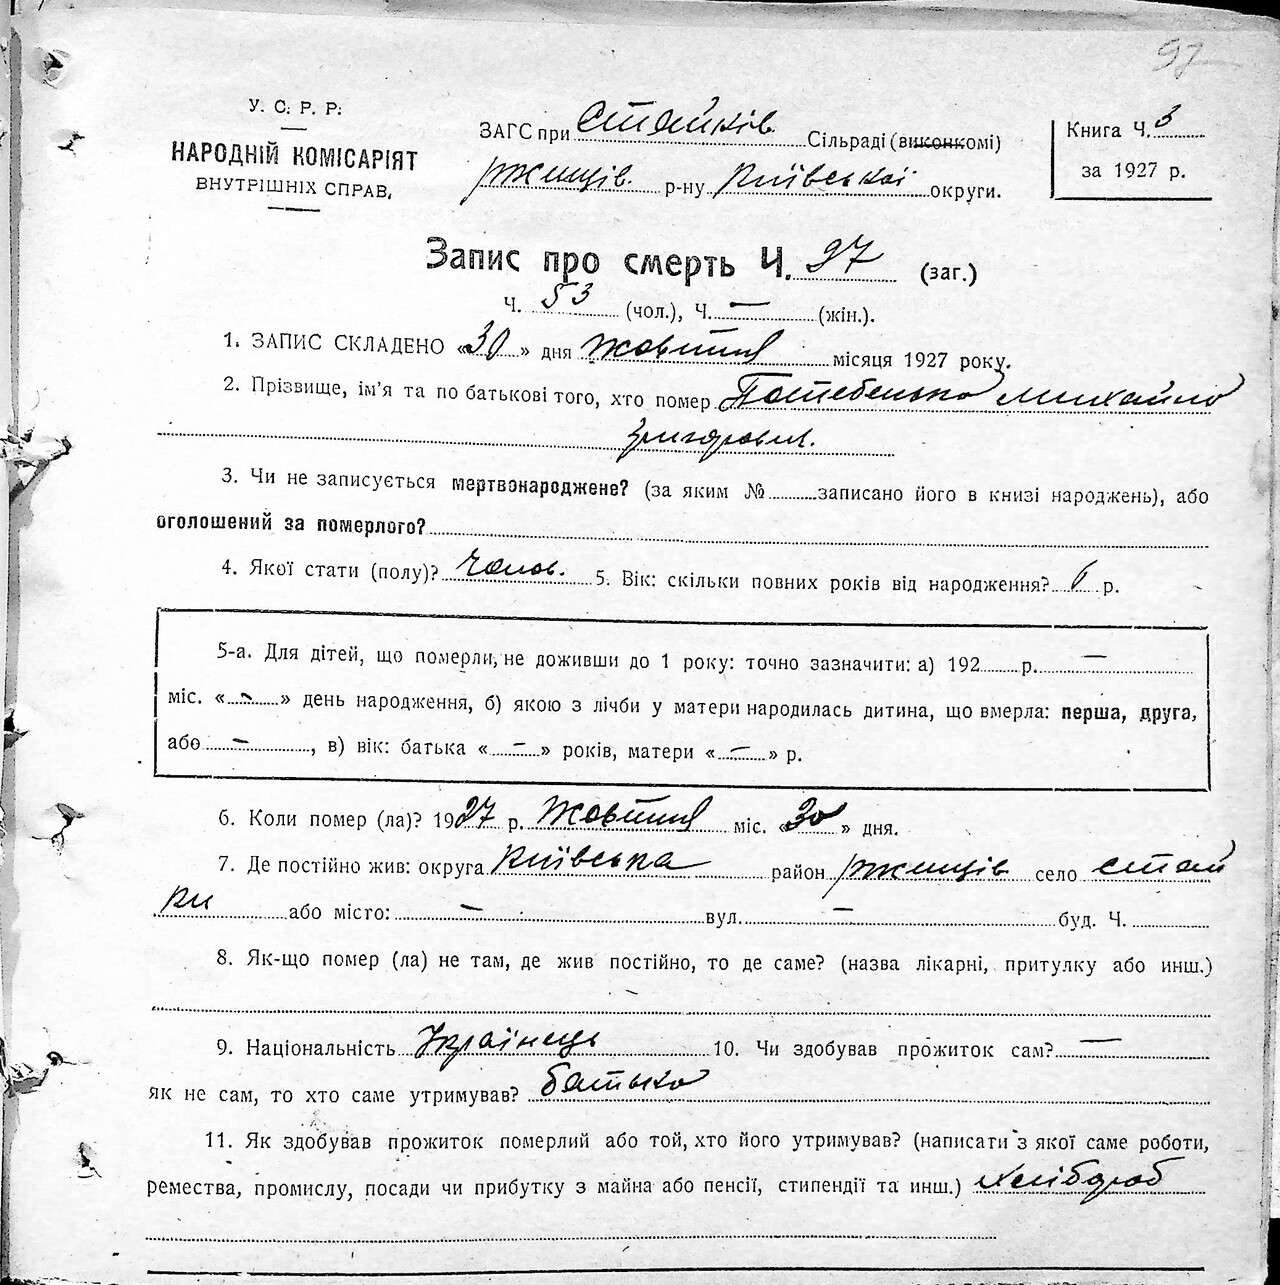 97
У. С. Р. Р.
НАРОДНІЙ КОМІСАРІЯТ
ВНУТРІШНІХ СПРАВ,
ЗАГС при Стайків Сільраді (виконкомі)
Ржищів. р-ну Київської округи.
Книга Ч. 3
за 1927 р.
Запис про смерть Ч. 97 (заг.)
Ч. 53 (чол.), Ч. — (жін.).
1. ЗАПИС СКЛАДЕНО «30» дня Жовтня місяця 1927 року.
2. Прізвище, ім'я та по батькові того, хто помер Потебенько Михайло
Григорович.
3. Чи не записується мертвонароджене? (за яким № записано його в книзі народжень), або
оголошений за померлого?
4. Якої стати (полу)? Чолов. 5. Вік: скільки повних років від народження? 6 р.
5-а. Для дітей, що померли, не доживши до 1 року: точно зазначити: а) 192 р. —
міс. «-» день народження, б) якою з лічби у матери народилась дитина, що вмерла: перша, друга,
або —, в) вік: батька «—» років, матери «—» р.
6. Коли помер (ла)? 1927 р. Жовтня міс. «30» дня.
7. Де постійно жив: округа Київська район Ржищів село Стай
ки або місто: — вул. — буд. Ч.
8. Як-що помер (ла) не там, де жив постійно, то де саме? (назва лікарні, притулку або инш.)
9. Національність Українець 10. Чи здобував прожиток сам? —
як не сам, то хто саме утримував? батько
11. Як здобував прожиток померлий або той, хто його утримував? (написати з якої саме роботи,
ремества, промислу, посади чи прибутку з майна або пенсії, стипендії та инш.) хлібороб